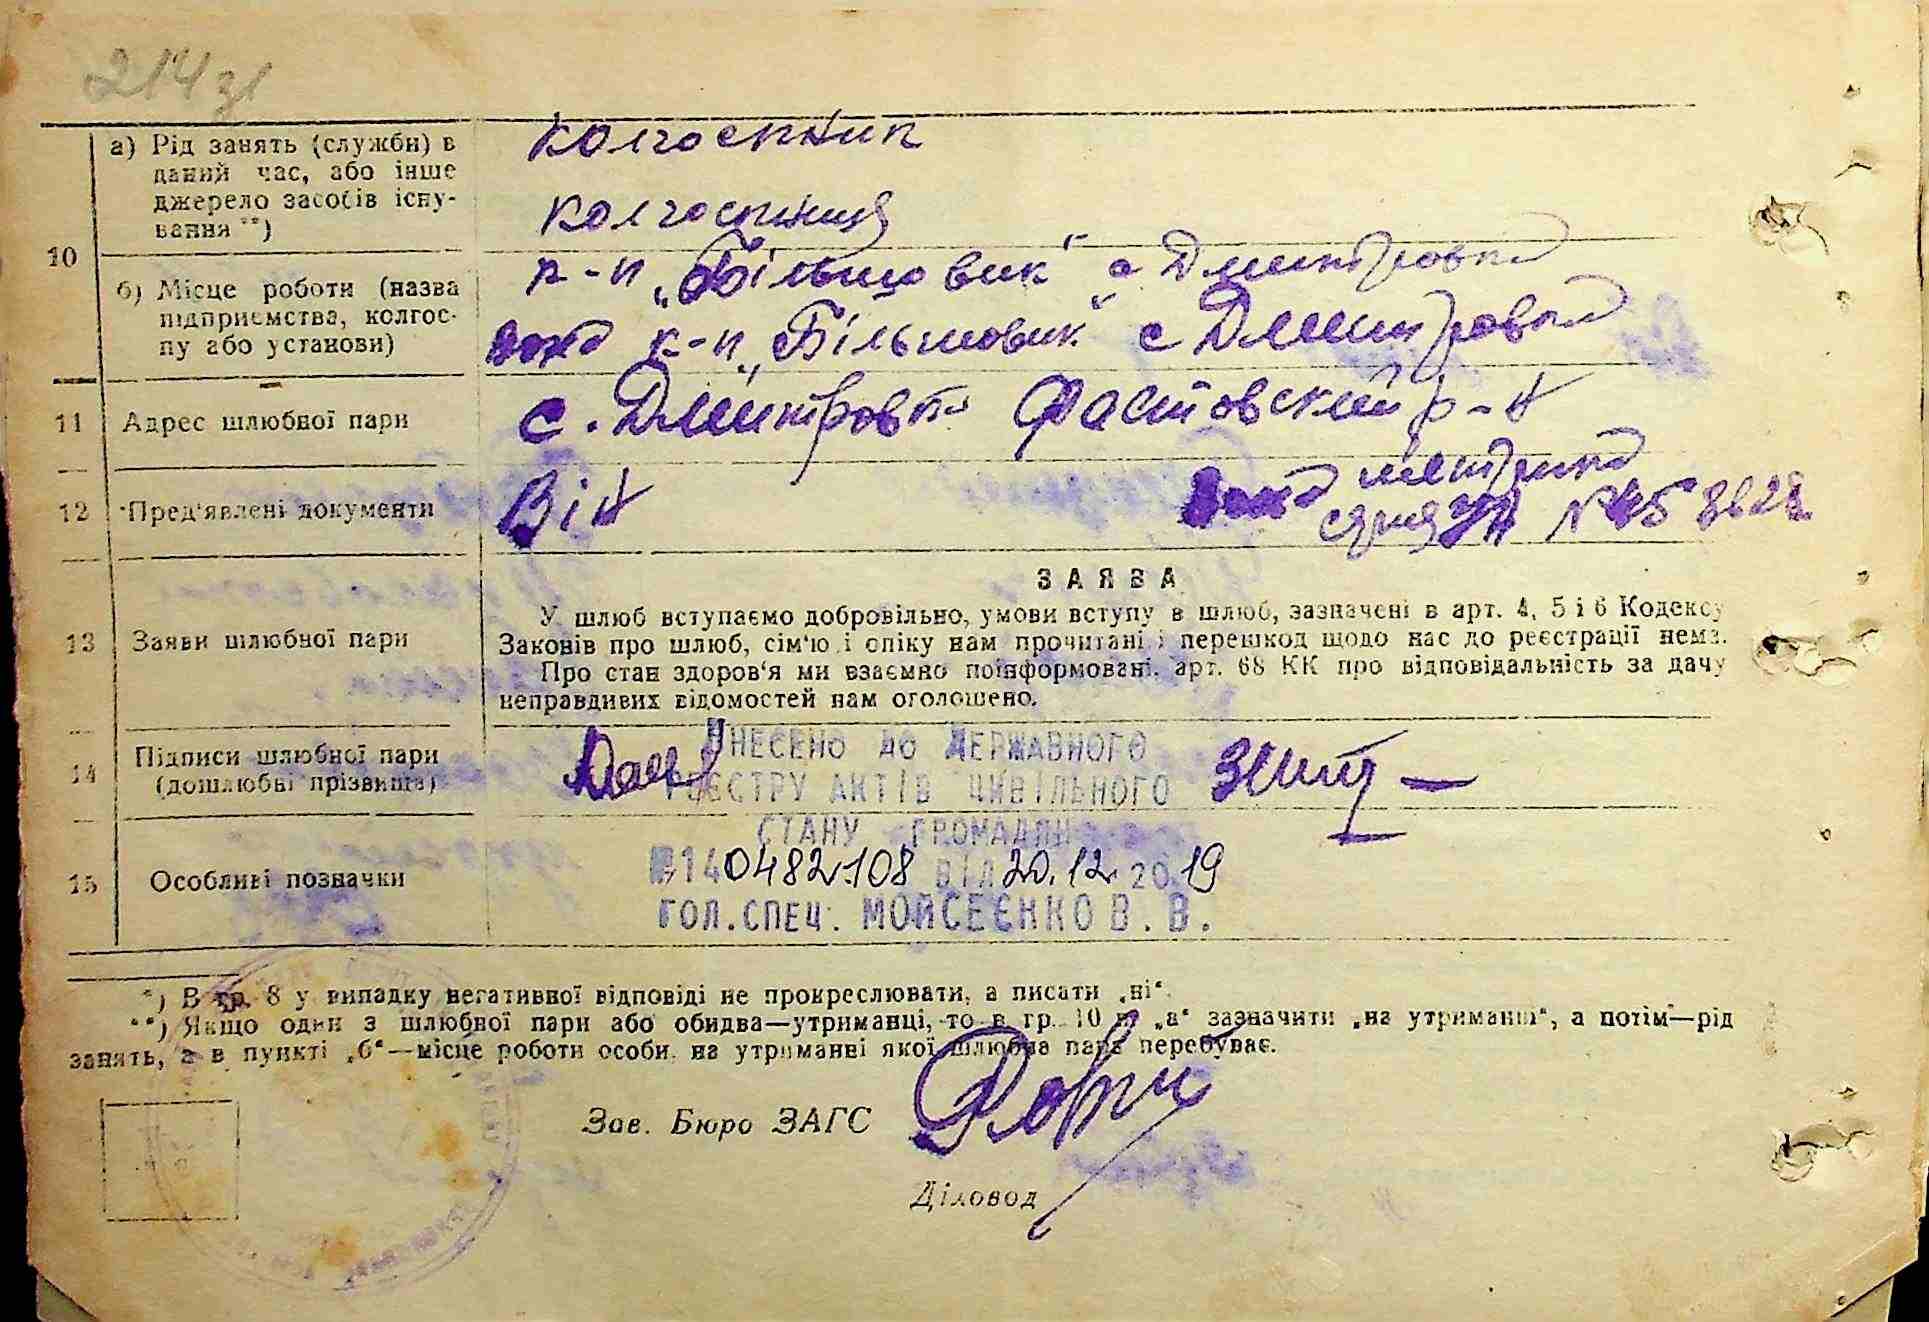 214 зі
10
а) Рід занять (служби) в
даний час, або інше
джерело засобів існу-
вання **)
колгоспник
колгоспниця
б) Місце роботи (назва
підприємства, колгос-
пу або установи)
к-п „Більшовик" с Дмитровка
к-п „Більшовик" с Дмитровка
11 Адрес шлюбної пари
с. Дмитровка Фастовский р-н
12 Пред'явлені документи
Він
метрика
серия № 
13 Заяви шлюбної пари
ЗАЯВА
У шлюб вступаємо добровільно, умови вступу в шлюб, зазначені в арт. 4, 5 і 6 Кодексу
Законів про шлюб, сім'ю і опіку нам прочитані і перешкод щодо нас до реєстрації нема.
Про стан здоров'я ми взаємно поінформовані, арт. 68 КК про відповідальність за дачу
неправдивих відомостей нам оголошено.
14 Підписи шлюбної пари
(дошлюбні прізвища)
ВНЕСЕНО ДО ДЕРЖАВНОГО
РЕЄСТРУ АКТІВ ЦИВІЛЬНОГО
СТАНУ ГРОМАДЯН
15 Особливі позначки
№140482108 ВІД 20.12.2019
ГОЛ.СПЕЦ. МОЙСЕЄНКО В.В.
*) В гр. 8 у випадку негативної відповіді не прокреслювати, а писати „ні".
**) Якщо один з шлюбної пари або обидва—утриманці, то в гр. 10 п. „а" зазначити „на утриманні", а потім—рід
занять, а в пункті „б"—місце роботи особи, на утриманні якої шлюбна пара перебуває.
Зав. Бюро ЗАГС
Діловод